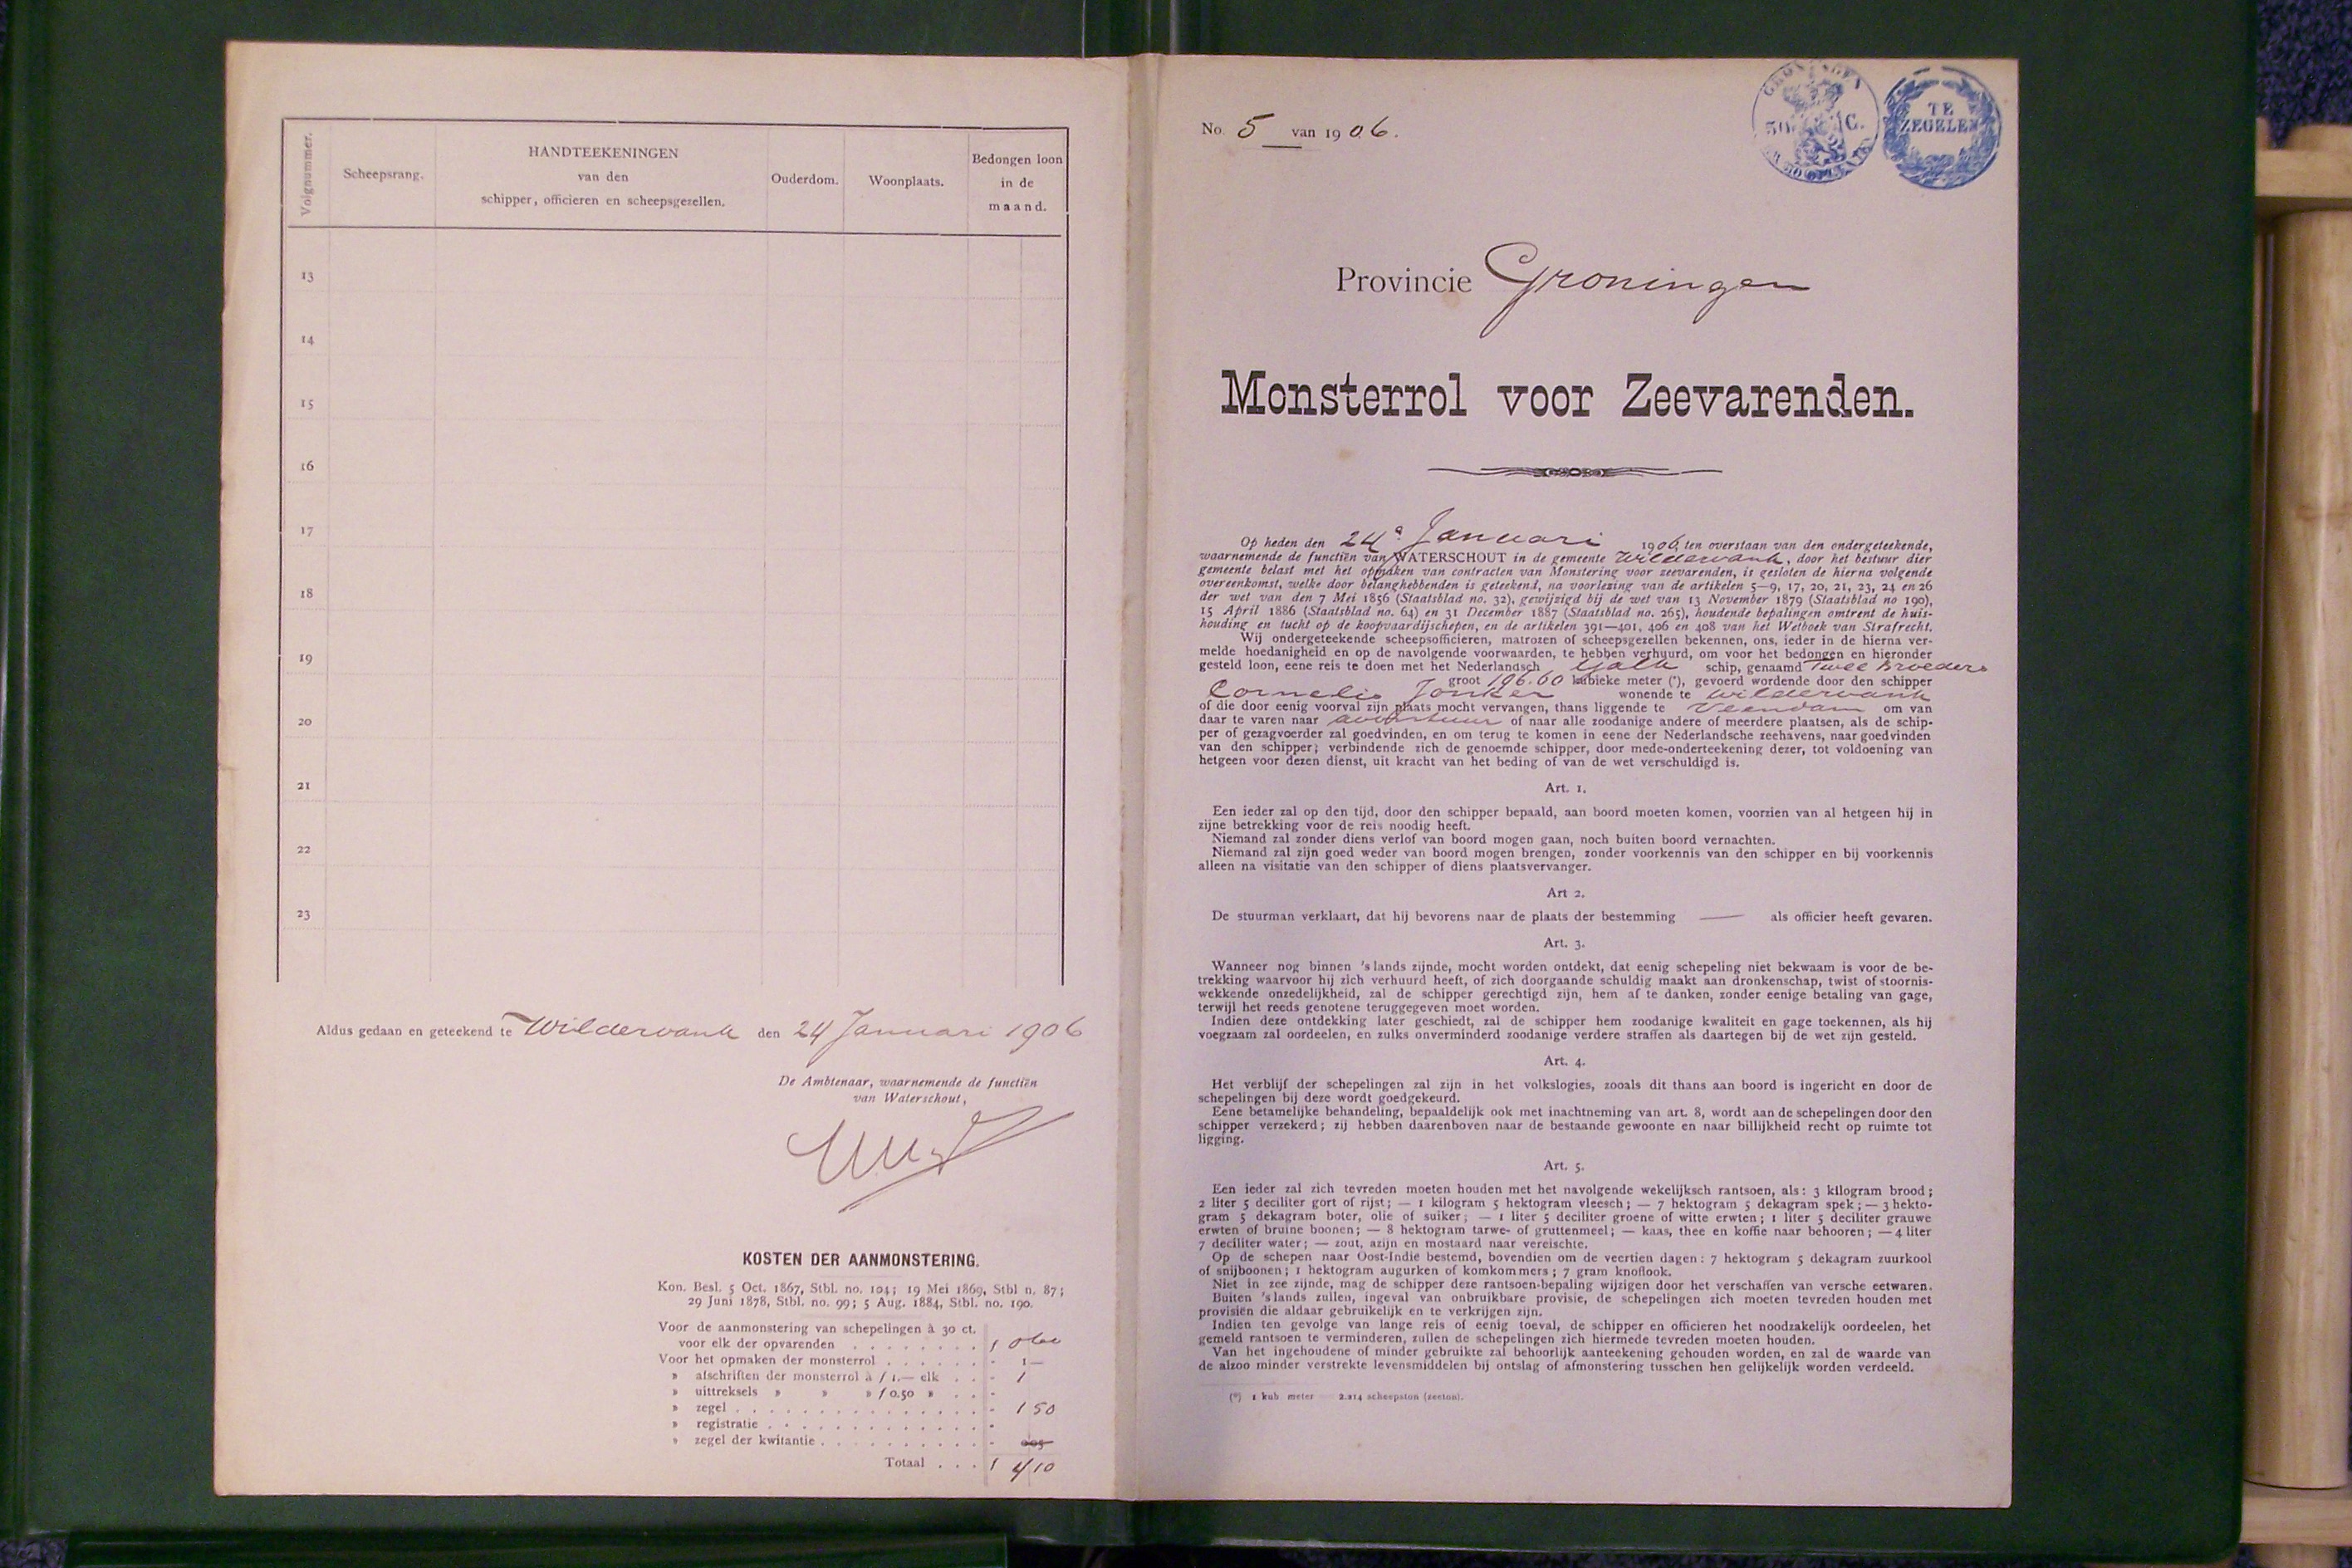 Volgnummer.
Scheepsrang.
HANDTEEKENINGEN
van den
schipper, officieren en scheepsgezellen.
Ouderdom.
Woonplaats.
Bedongen loon
in de
maand.
13
14
15
16
17
18
19
20
21
22
23
Aldus gedaan en geteekend te Wildervank den 24 Januari 1906
De Ambtenaar, waarnemende de functiën
van Waterschout,
KOSTEN DER AANMONSTERING.
Kon. Besl. 5 Oct. 1867, Stbl. no. 104; 19 Mei 1869, Stbl n. 87;
29 Juni 1878, Stbl. no. 99; 5 Aug. 1884, Stbl. no. 190.
Voor de aanmonstering van schepelingen à 30 ct.
voor elk der opvarenden . . . . . . . . f 0 60
Voor het opmaken der monsterrol . . . . . . - 1 —
» afschriften der monsterrol à f 1.— elk . . - 1
» uittreksels » » » f 0.50 » . . -
» zegel . . . . . . . . . . . . . . . - 1 50
» registratie . . . . . . . . . . . . . -
» zegel der kwitantie . . . . . . . . . . - 005
Totaal . . . f 4 10
No. 5 van 1906.
GRONINGEN
50 C.
TE
ZEGELEN
Provincie Groningen
Monsterrol voor Zeevarenden.
Op heden den 24e Januari 1906, ten overstaan van den ondergeteekende,
waarnemende de functiën van WATERSCHOUT in de gemeente Wildervank, door het bestuur dier
gemeente belast met het opmaken van contracten van Monstering voor zeevarenden, is gesloten de hierna volgende
overeenkomst, welke door belanghebbenden is geteekend, na voorlezing van de artikelen 5—9, 17, 20, 21, 23, 24 en 26
der wet van den 7 Mei 1856 (Staatsblad no. 32), gewijzigd bij de wet van 13 November 1879 (Staatsblad no 190),
15 April 1886 (Staatsblad no. 64) en 31 December 1887 (Staatsblad no. 265), houdende bepalingen omtrent de huis-
houding en tucht op de koopvaardijschepen, en de artikelen 391—401, 406 en 408 van het Wetboek van Strafrecht.
Wij ondergeteekende scheepsofficieren, matrozen of scheepsgezellen bekennen, ons, ieder in de hierna ver-
melde hoedanigheid en op de navolgende voorwaarden, te hebben verhuurd, om voor het bedongen en hieronder
gesteld loon, eene reis te doen met het Nederlandsch Tjalk schip, genaamd Twee Broeders
groot 196.60 kubieke meter (*), gevoerd wordende door den schipper
Cornelis Jonker wonende te Wildervank
of die door eenig voorval zijn plaats mocht vervangen, thans liggende te Veendam om van
daar te varen naar avontuur of naar alle zoodanige andere of meerdere plaatsen, als de schip-
per of gezagvoerder zal goedvinden, en om terug te komen in eene der Nederlandsche zeehavens, naar goedvinden
van den schipper; verbindende zich de genoemde schipper, door mede-onderteekening dezer, tot voldoening van
hetgeen voor dezen dienst, uit kracht van het beding of van de wet verschuldigd is.
Art. 1.
Een ieder zal op den tijd, door den schipper bepaald, aan boord moeten komen, voorzien van al hetgeen hij in
zijne betrekking voor de reis noodig heeft.
Niemand zal zonder diens verlof van boord mogen gaan, noch buiten boord vernachten.
Niemand zal zijn goed weder van boord mogen brengen, zonder voorkennis van den schipper en bij voorkennis
alleen na visitatie van den schipper of diens plaatsvervanger.
Art 2.
De stuurman verklaart, dat hij bevorens naar de plaats der bestemming —— als officier heeft gevaren.
Art. 3.
Wanneer nog binnen 's lands zijnde, mocht worden ontdekt, dat eenig schepeling niet bekwaam is voor de be-
trekking waarvoor hij zich verhuurd heeft, of zich doorgaande schuldig maakt aan dronkenschap, twist of stoornis-
wekkende onzedelijkheid, zal de schipper gerechtigd zijn, hem af te danken, zonder eenige betaling van gage,
terwijl het reeds genotene teruggegeven moet worden.
Indien deze ontdekking later geschiedt, zal de schipper hem zoodanige kwaliteit en gage toekennen, als hij
voegzaam zal oordeelen, en zulks onverminderd zoodanige verdere straffen als daartegen bij de wet zijn gesteld.
Art. 4.
Het verblijf der schepelingen zal zijn in het volkslogies, zooals dit thans aan boord is ingericht en door de
schepelingen bij deze wordt goedgekeurd.
Eene betamelijke behandeling, bepaaldelijk ook met inachtneming van art. 8, wordt aan de schepelingen door den
schipper verzekerd; zij hebben daarenboven naar de bestaande gewoonte en naar billijkheid recht op ruimte tot
ligging.
Art. 5.
Een ieder zal zich tevreden moeten houden met het navolgende wekelijksch rantsoen, als: 3 kilogram brood;
2 liter 5 deciliter gort of rijst; — 1 kilogram 5 hektogram vleesch; — 7 hektogram 5 dekagram spek; — 3 hekto-
gram 5 dekagram boter, olie of suiker; — 1 liter 5 deciliter groene of witte erwten; 1 liter 5 deciliter grauwe
erwten of bruine boonen; — 8 hektogram tarwe- of gruttenmeel; — kaas, thee en koffie naar behooren; — 4 liter
7 deciliter water; — zout, azijn en mostaard naar vereischte.
Op de schepen naar Oost-Indië bestemd, bovendien om de veertien dagen: 7 hektogram 5 dekagram zuurkool
of snijboonen; 1 hektogram augurken of komkommers; 7 gram knoflook.
Niet in zee zijnde, mag de schipper deze rantsoen-bepaling wijzigen door het verschaffen van versche eetwaren.
Buiten 's lands zullen, ingeval van onbruikbare provisie, de schepelingen zich moeten tevreden houden met
provisiën die aldaar gebruikelijk en te verkrijgen zijn.
Indien ten gevolge van lange reis of eenig toeval, de schipper en officieren het noodzakelijk oordeelen, het
gemeld rantsoen te verminderen, zullen de schepelingen zich hiermede tevreden moeten houden.
Van het ingehoudene of minder gebruikte zal behoorlijk aanteekening gehouden worden, en zal de waarde van
de alzoo minder verstrekte levensmiddelen bij ontslag of afmonstering tusschen hen gelijkelijk worden verdeeld.
(*) 1 kub. meter 2.214 scheepston (zeeton).